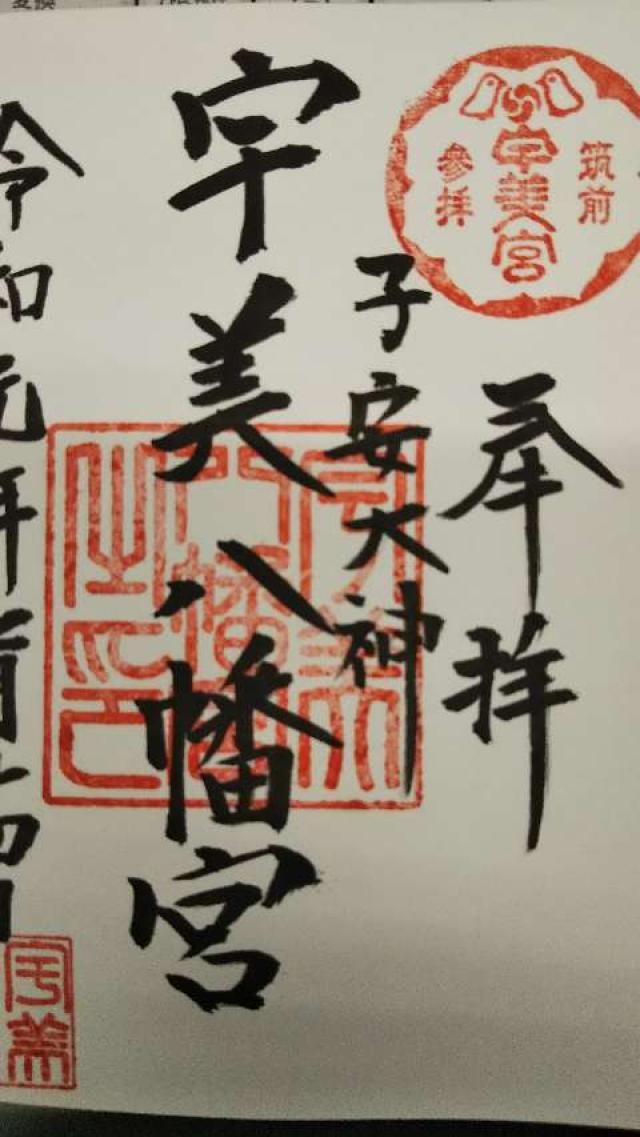 筑前
宇美宮
參拝
奉拝
子安大神
宇美八幡宮
宇美
八幡宮
之印
令和元年
宇美